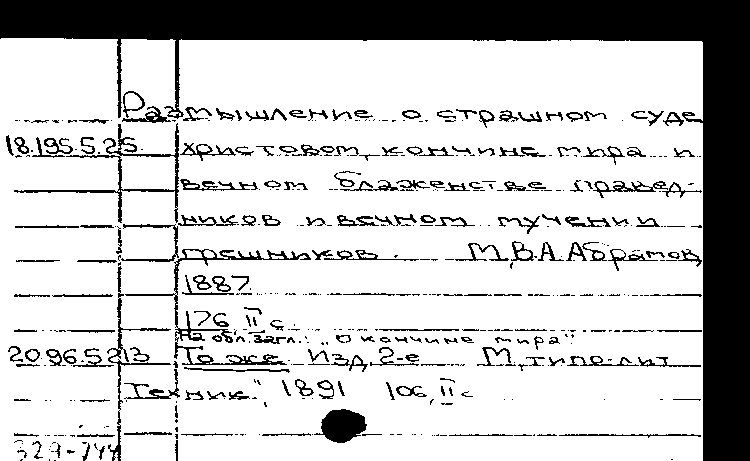 Размышление о страшном суде
18.195.5.25 христовом, кончине мира и
вечном блаженстве правед-
ников и вечном мучении
грешников. М, В.А. Абрамов,
1887
176, II с.
На обл. загл.: "О кончине мира"
20.96.5.213 То же. Изд. 2-е М, типо-лит
Техник", 1891 106, II с
329-744